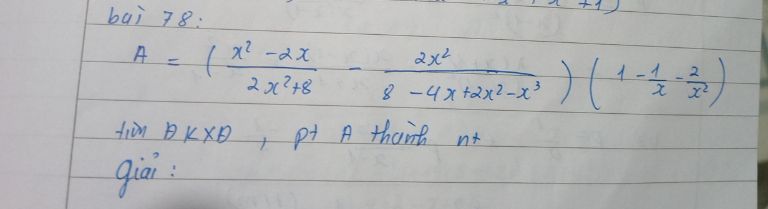 bài 78:
A = ( x² - 2x / 2x² + 8 - 2x² / 8 - 4x + 2x² - x³ ) ( 1 - 1/x - 2/x² )
tìm ĐKXĐ , pt A thành nt
giải :